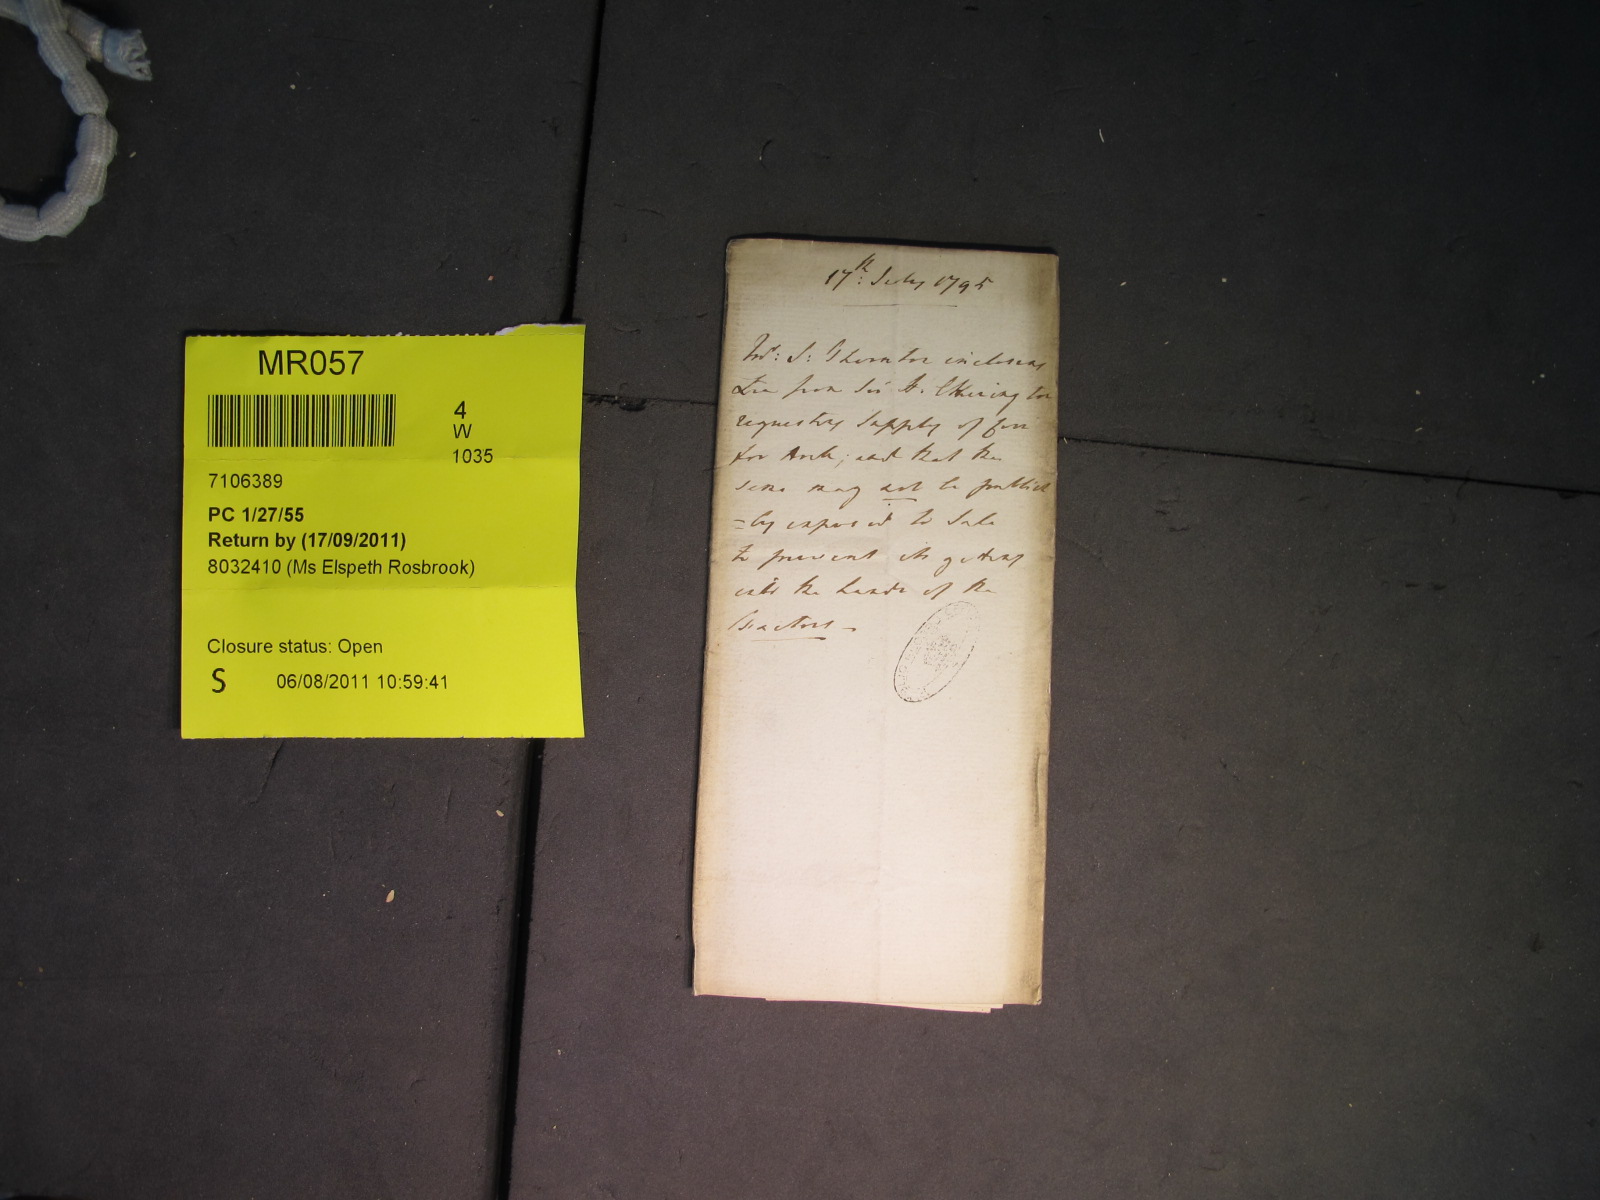 MR057
4
W
1035
7106389
PC 1/27/55
Return by (17/09/2011)
8032410 (Ms Elspeth Rosbrook)
Closure status: Open
S 06/08/2011 10:59:41
17th: July 1795
Mr: S: Thornton incloses
from Sir H. Etherington
requesting Supply of
for ; and that the
same may not be publick
=ly exposed to Sale
to prevent its getting
into the hands of the
Factors